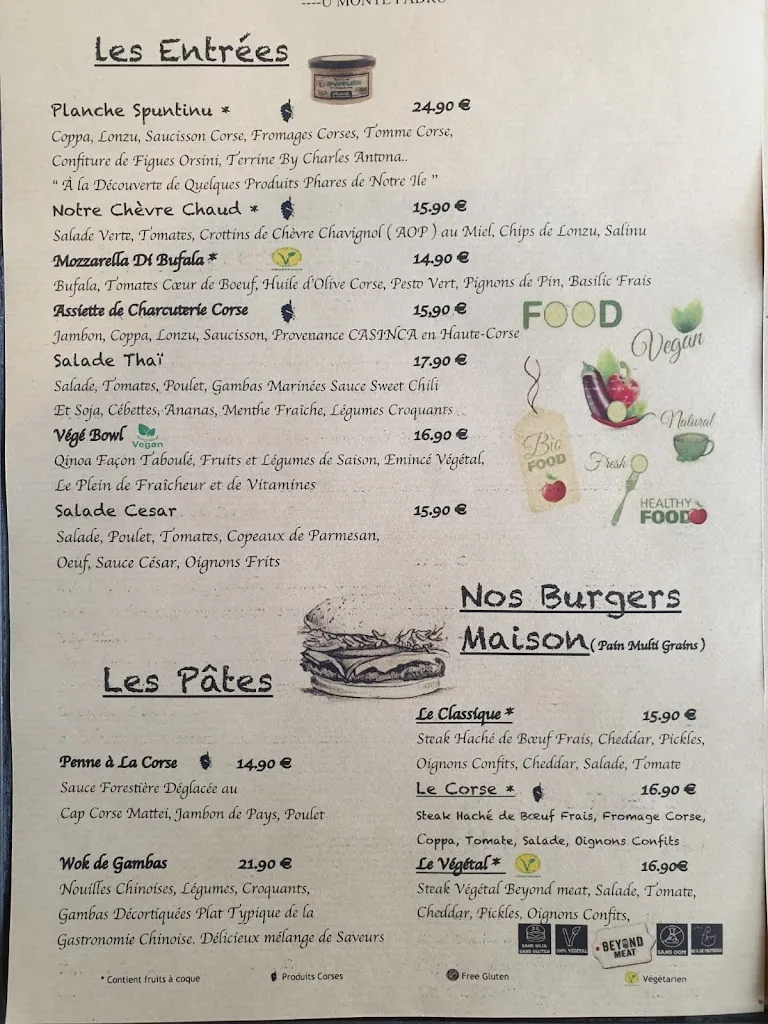 ----U MONTE PADRU
Les Entrées
Planche Spuntinu * 24.90 €
Coppa, Lonzu, Saucisson Corse, Fromages Corses, Tomme Corse,
Confiture de Figues Orsini, Terrine By Charles Antona..
" À la Découverte de Quelques Produits Phares de Notre Ile "
Notre Chèvre Chaud * 15.90 €
Salade Verte, Tomates, Crottins de Chèvre Chavignol ( AOP ) au Miel, Chips de Lonzu, Salinu
Mozzarella Di Bufala * 14.90 €
Bufala, Tomates Cœur de Boeuf, Huile d'Olive Corse, Pesto Vert, Pignons de Pin, Basilic Frais
Assiette de Charcuterie Corse 15,90 €
Jambon, Coppa, Lonzu, Saucisson, Provenance CASINCA en Haute-Corse
Salade Thaï 17.90 €
Salade, Tomates, Poulet, Gambas Marinées Sauce Sweet Chili
Et Soja, Cébettes, Ananas, Menthe Fraîche, Légumes Croquants
Végé Bowl Vegan 16.90 €
Qinoa Façon Taboulé, Fruits et Légumes de Saison, Emincé Végétal,
Le Plein de Fraîcheur et de Vitamines
Salade Cesar 15.90 €
Salade, Poulet, Tomates, Copeaux de Parmesan,
Oeuf, Sauce César, Oignons Frits
FOOD
Vegan
Natural
Bio
FOOD
Fresh
HEALTHY
FOOD
Les Pâtes
Penne à La Corse 14.90 €
Sauce Forestière Déglacée au
Cap Corse Mattei, Jambon de Pays, Poulet
Wok de Gambas 21.90 €
Nouilles Chinoises, Légumes, Croquants,
Gambas Décortiquées Plat Typique de la
Gastronomie Chinoise. Délicieux mélange de Saveurs
Nos Burgers
Maison ( Pain Multi Grains )
Le Classique * 15.90 €
Steak Haché de Bœuf Frais, Cheddar, Pickles,
Oignons Confits, Cheddar, Salade, Tomate
Le Corse * 16.90 €
Steak Haché de Bœuf Frais, Fromage Corse,
Coppa, Tomate, Salade, Oignons Confits
Le Végétal * 16.90€
Steak Végétal Beyond meat, Salade, Tomate,
Cheddar, Pickles, Oignons Confits,
SANS SOJA
SANS GLUTEN
100% VEGETAL
BEYOND
MEAT
SANS OGM
* Contient fruits à coque
Produits Corses
Free Gluten
Végétarien